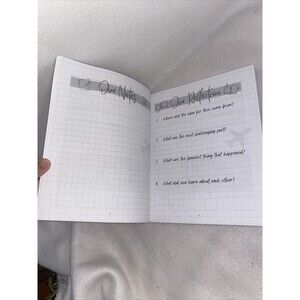 Our Notes
Our Reflection
1. Where did the idea for this come from?
2. What was the most challenging part?
3. What was the funniest thing that happened?
4. What did you learn about each other?